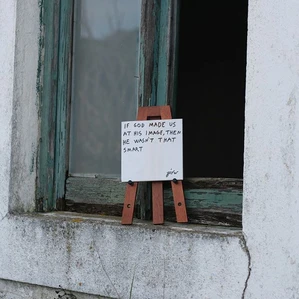 IF GOD MADE US
AT HIS IMAGE, THEN
HE WASN'T THAT
SMART